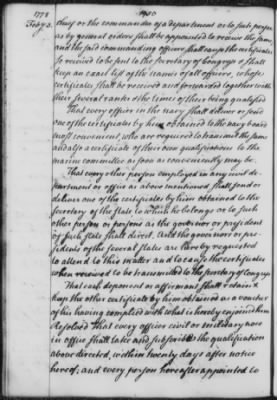 1778
Feby 3.
thief or the commander of a department or to such person
as by general orders shall be appointed to receive the same,
and the said commanding officers shall cause the certificates
so received to be sent to the Secretary of Congress & shall
keep an exact list of the names of all officers, whose
certificates shall be received and forwarded together with
their several ranks & the times of their being qualified
That every officer in the navy shall deliver or send
one of the certificates by him obtained to the navy board
most convenient who are required to transmit the same
and also a certificate of their own qualifications to the
marine committee as soon as conveniently may be.
That every other person employed in any civil de-
partment or office as above mentioned shall send or
deliver one of the certificates by him obtained to the
Secretary of the State to which he belongs or to such
other person or persons as the governor or president
of such state shall direct. And the governors or pre-
sidents of the several states are hereby requested
to attend to this matter and to cause the certificates
when received to be transmitted to the secretary of Congress
That each deponent or affirmant shall retain &
keep the other certificate by him obtained as a voucher
of his having complied with what is hereby enjoined them
Resolved That every officer civil or military now
in office shall take and subscribe the qualification
above directed, within twenty days after notice
hereof; and every person hereafter appointed to